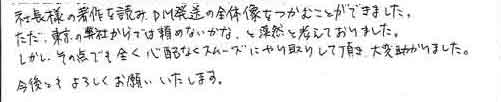 社長様の著作を読み、DM発送の全体像をつかむことができました。
ただ、東京の弊社からでは頼めないかな、と漠然と考えておりました。
しかし、その点でも全く心配なくスムーズにやり取りして頂き、大変助かりました。
今後ともよろしくお願いいたします。